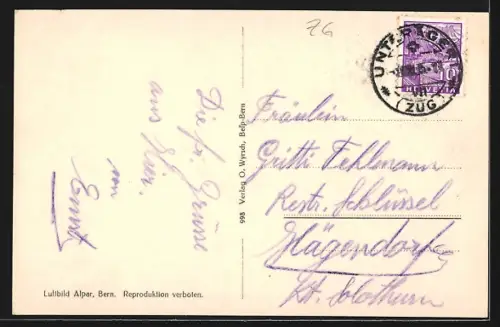 76
UNTERÄGERI
(ZUG)
HELVETIA
10
Fräulein
Gritti Fehlmann
Restr. Schlüssel
Hägendorf
Kt. Solothurn
Die fr. Grüsse
aus hier.
von
Ernst
998 Verlag O. Wyrsch, Belp-Bern
Luftbild Alpar, Bern. Reproduktion verboten.